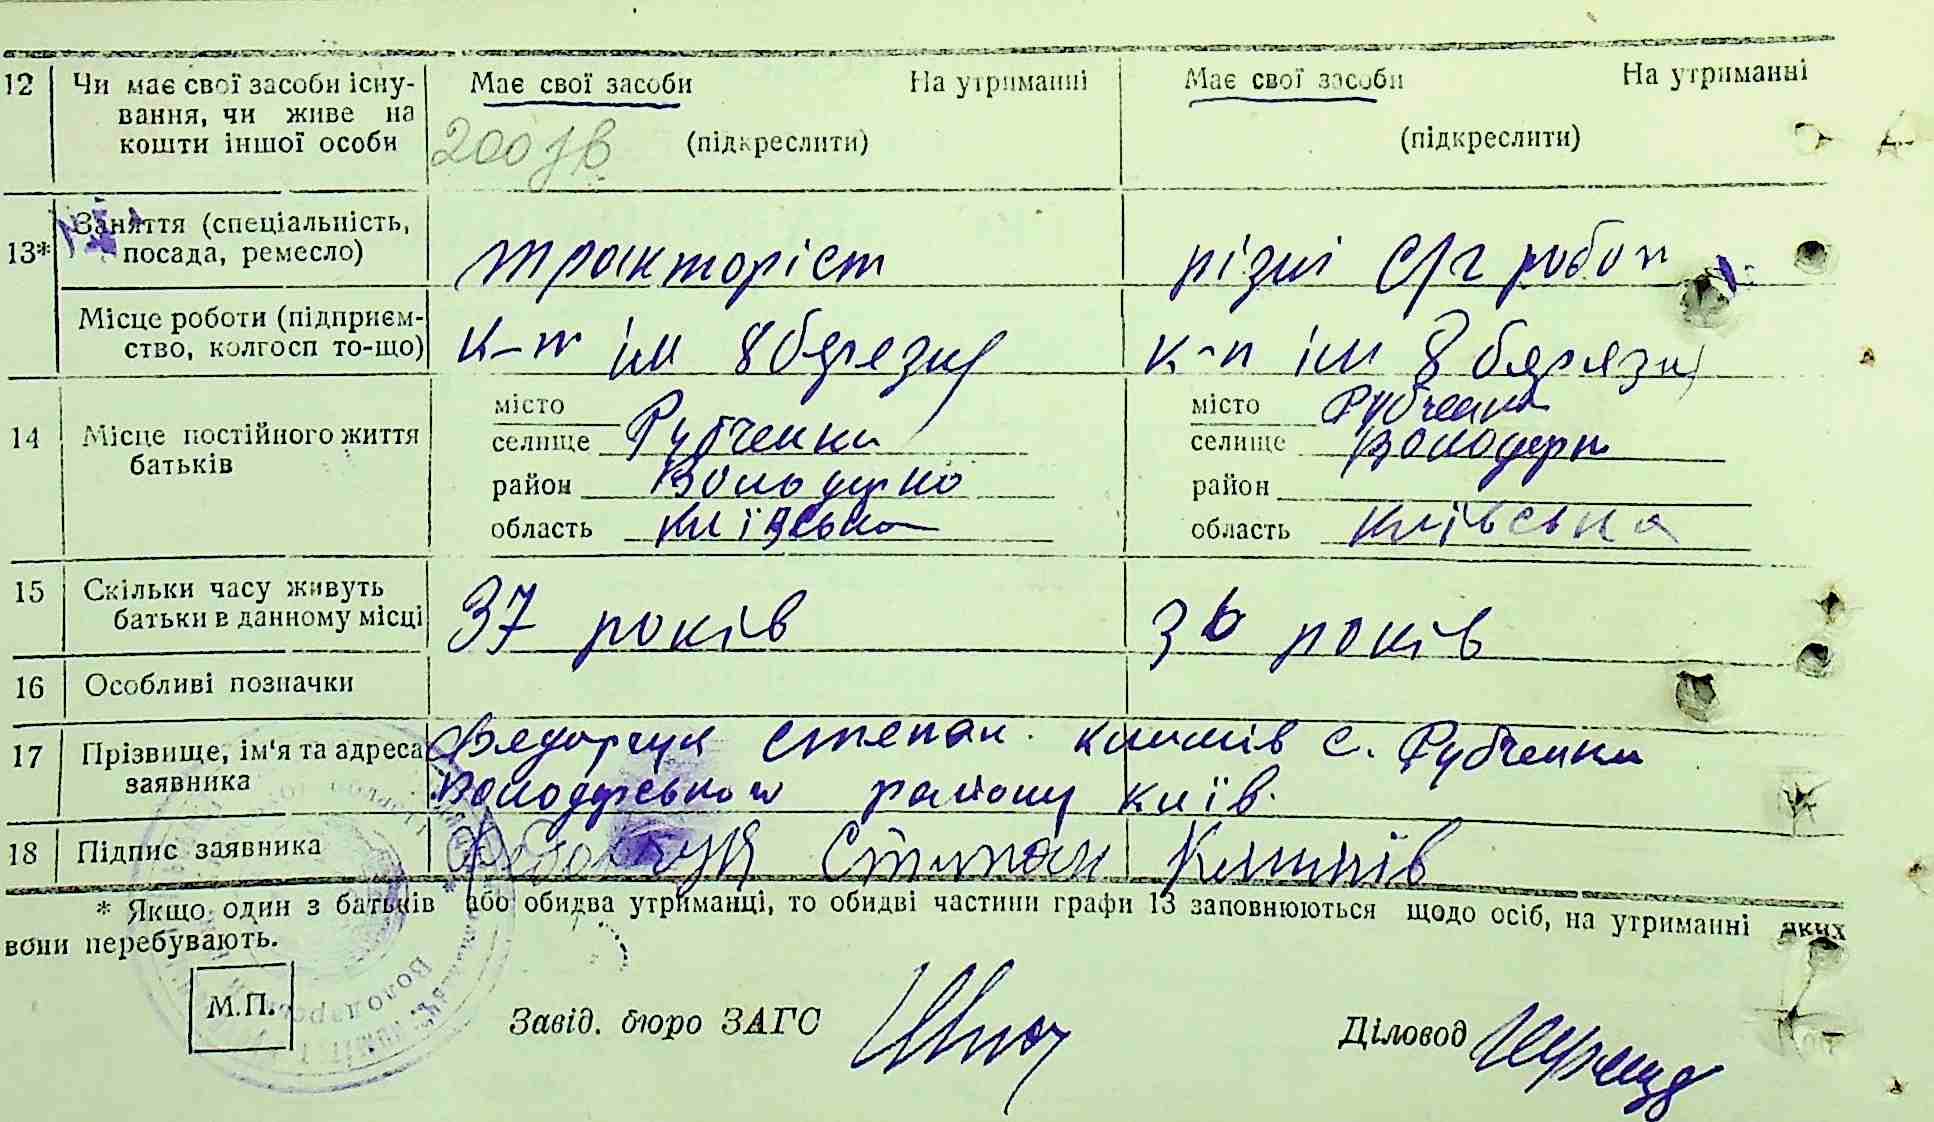 12 Чи має свої засоби існу- Має свої засоби На утриманні Має свої засоби На утриманні
вання, чи живе на
кошти іншої особи (підкреслити) (підкреслити)
13* Заняття (спеціальність,
посада, ремесло) тракторіст різні с/г робот
Місце роботи (підприєм-
ство, колгосп то-що) к-п ім 8 березня к-п ім 8 березня
14 Місце постійного життя
батьків
місто місто Рубченки
селище Рубченки селище
район район
область київська область київська
15 Скільки часу живуть
батьки в данному місці 37 років 36 років
16 Особливі позначки
17 Прізвище, ім'я та адреса
заявника
Федорчук степан с. Рубченки
району Київ.
18 Підпис заявника Степан
* Якщо один з батьків або обидва утриманці, то обидві частини графи 13 заповнюються щодо осіб, на утриманні яких
вони перебувають.
М.П. Завід. бюро ЗАГС Діловод